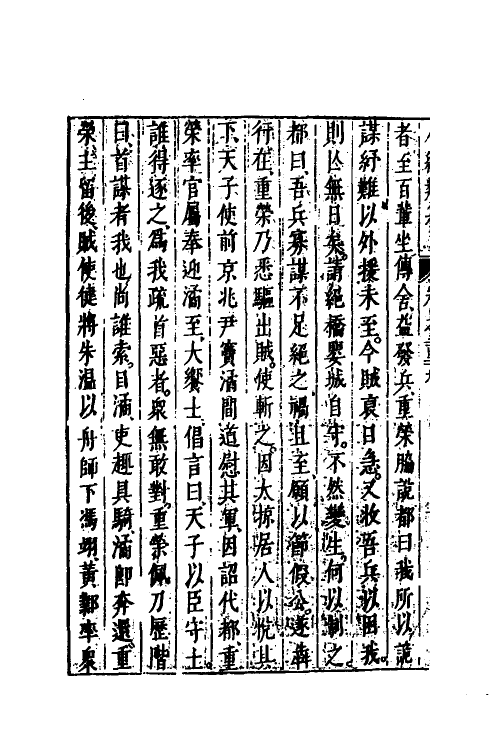 者至百輩坐傳舍益發兵重榮脇說都曰我所以詭
謀紓難以外援未至今賊裒日急又收吾兵以困我
則亾無日矣請絕橋嬰城自守不然變生何以制之
都曰吾兵寡謀不足絕之禍且至願以節假公遂犇
行在重榮乃悉驅出賊使斬之因大掠居人以悅其
下天子使前京兆尹竇潏間道慰其軍因詔代都重
榮率官屬奉迎潏至大饗士倡言曰天子以臣守土
誰得逐之爲我疏首惡者衆無敢對重榮佩刀歷階
曰首謀者我也尚誰索目潏吏趣具騎潏卽奔還重
榮主留後賊使徤將朱溫以舟師下馮翊黃鄴率衆